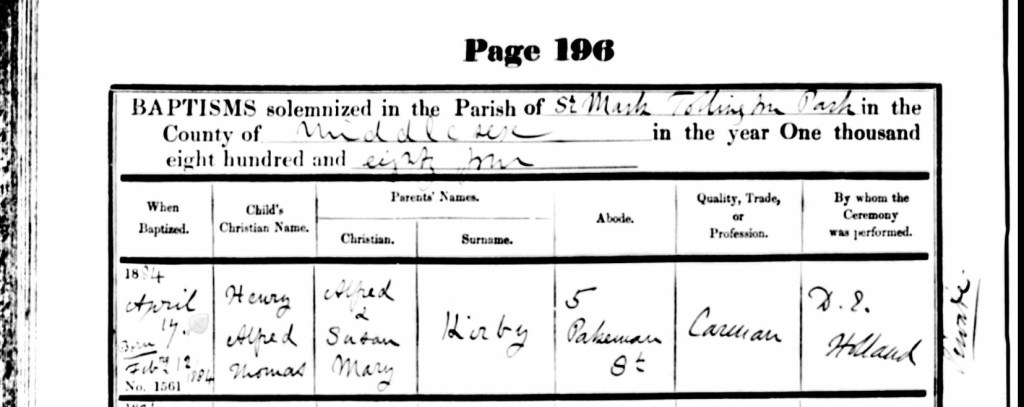 Page 196
BAPTISMS solemnized in the Parish of St Mark Tollington Park in the
County of Middlesex in the year One thousand
eight hundred and eighty four
When Baptized.
Child's Christian Name.
Parents' Names.
Christian.
Surname.
Abode.
Quality, Trade, or Profession.
By whom the Ceremony was performed.
1884
April
17.
Born
Feby 12
1884
No. 1561
Henry
Alfred
Thomas
Alfred
&
Susan
Mary
Kirby
5
Pakeman
St
Carman
D. E.
Holland
Private.